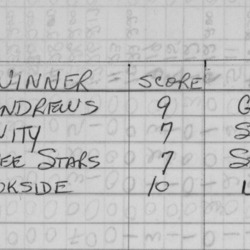 WINNER SCORE
NDREWS 9 G
UITY 7 S
EE STARS 7 S
OKSIDE 10 L